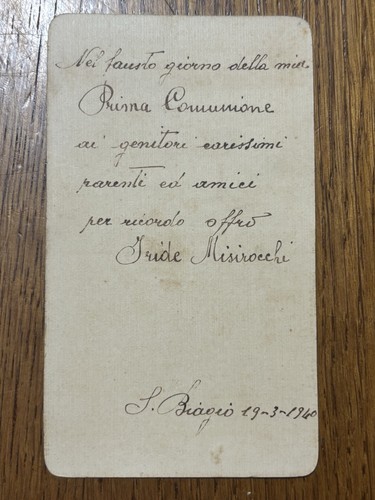 Nel fausto giorno della mia
Prima Comunione
ai genitori carissimi
parenti ed amici
per ricordo offro
Iride Misirocchi
S. Biagio 19-3-1940